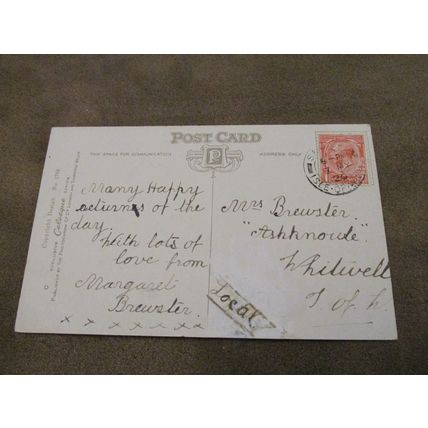 POST CARD
THIS SPACE FOR COMMUNICATION
ADDRESS ONLY
P
Many Happy
returns of the
day.
With lots of
love from
Margaret
Brewster.
x x x x x x x x
Mrs Brewster.
"Ashknowle"
Whitwell
I. of W.
Local
ISLE-OF-
Copyright Design
Celesque